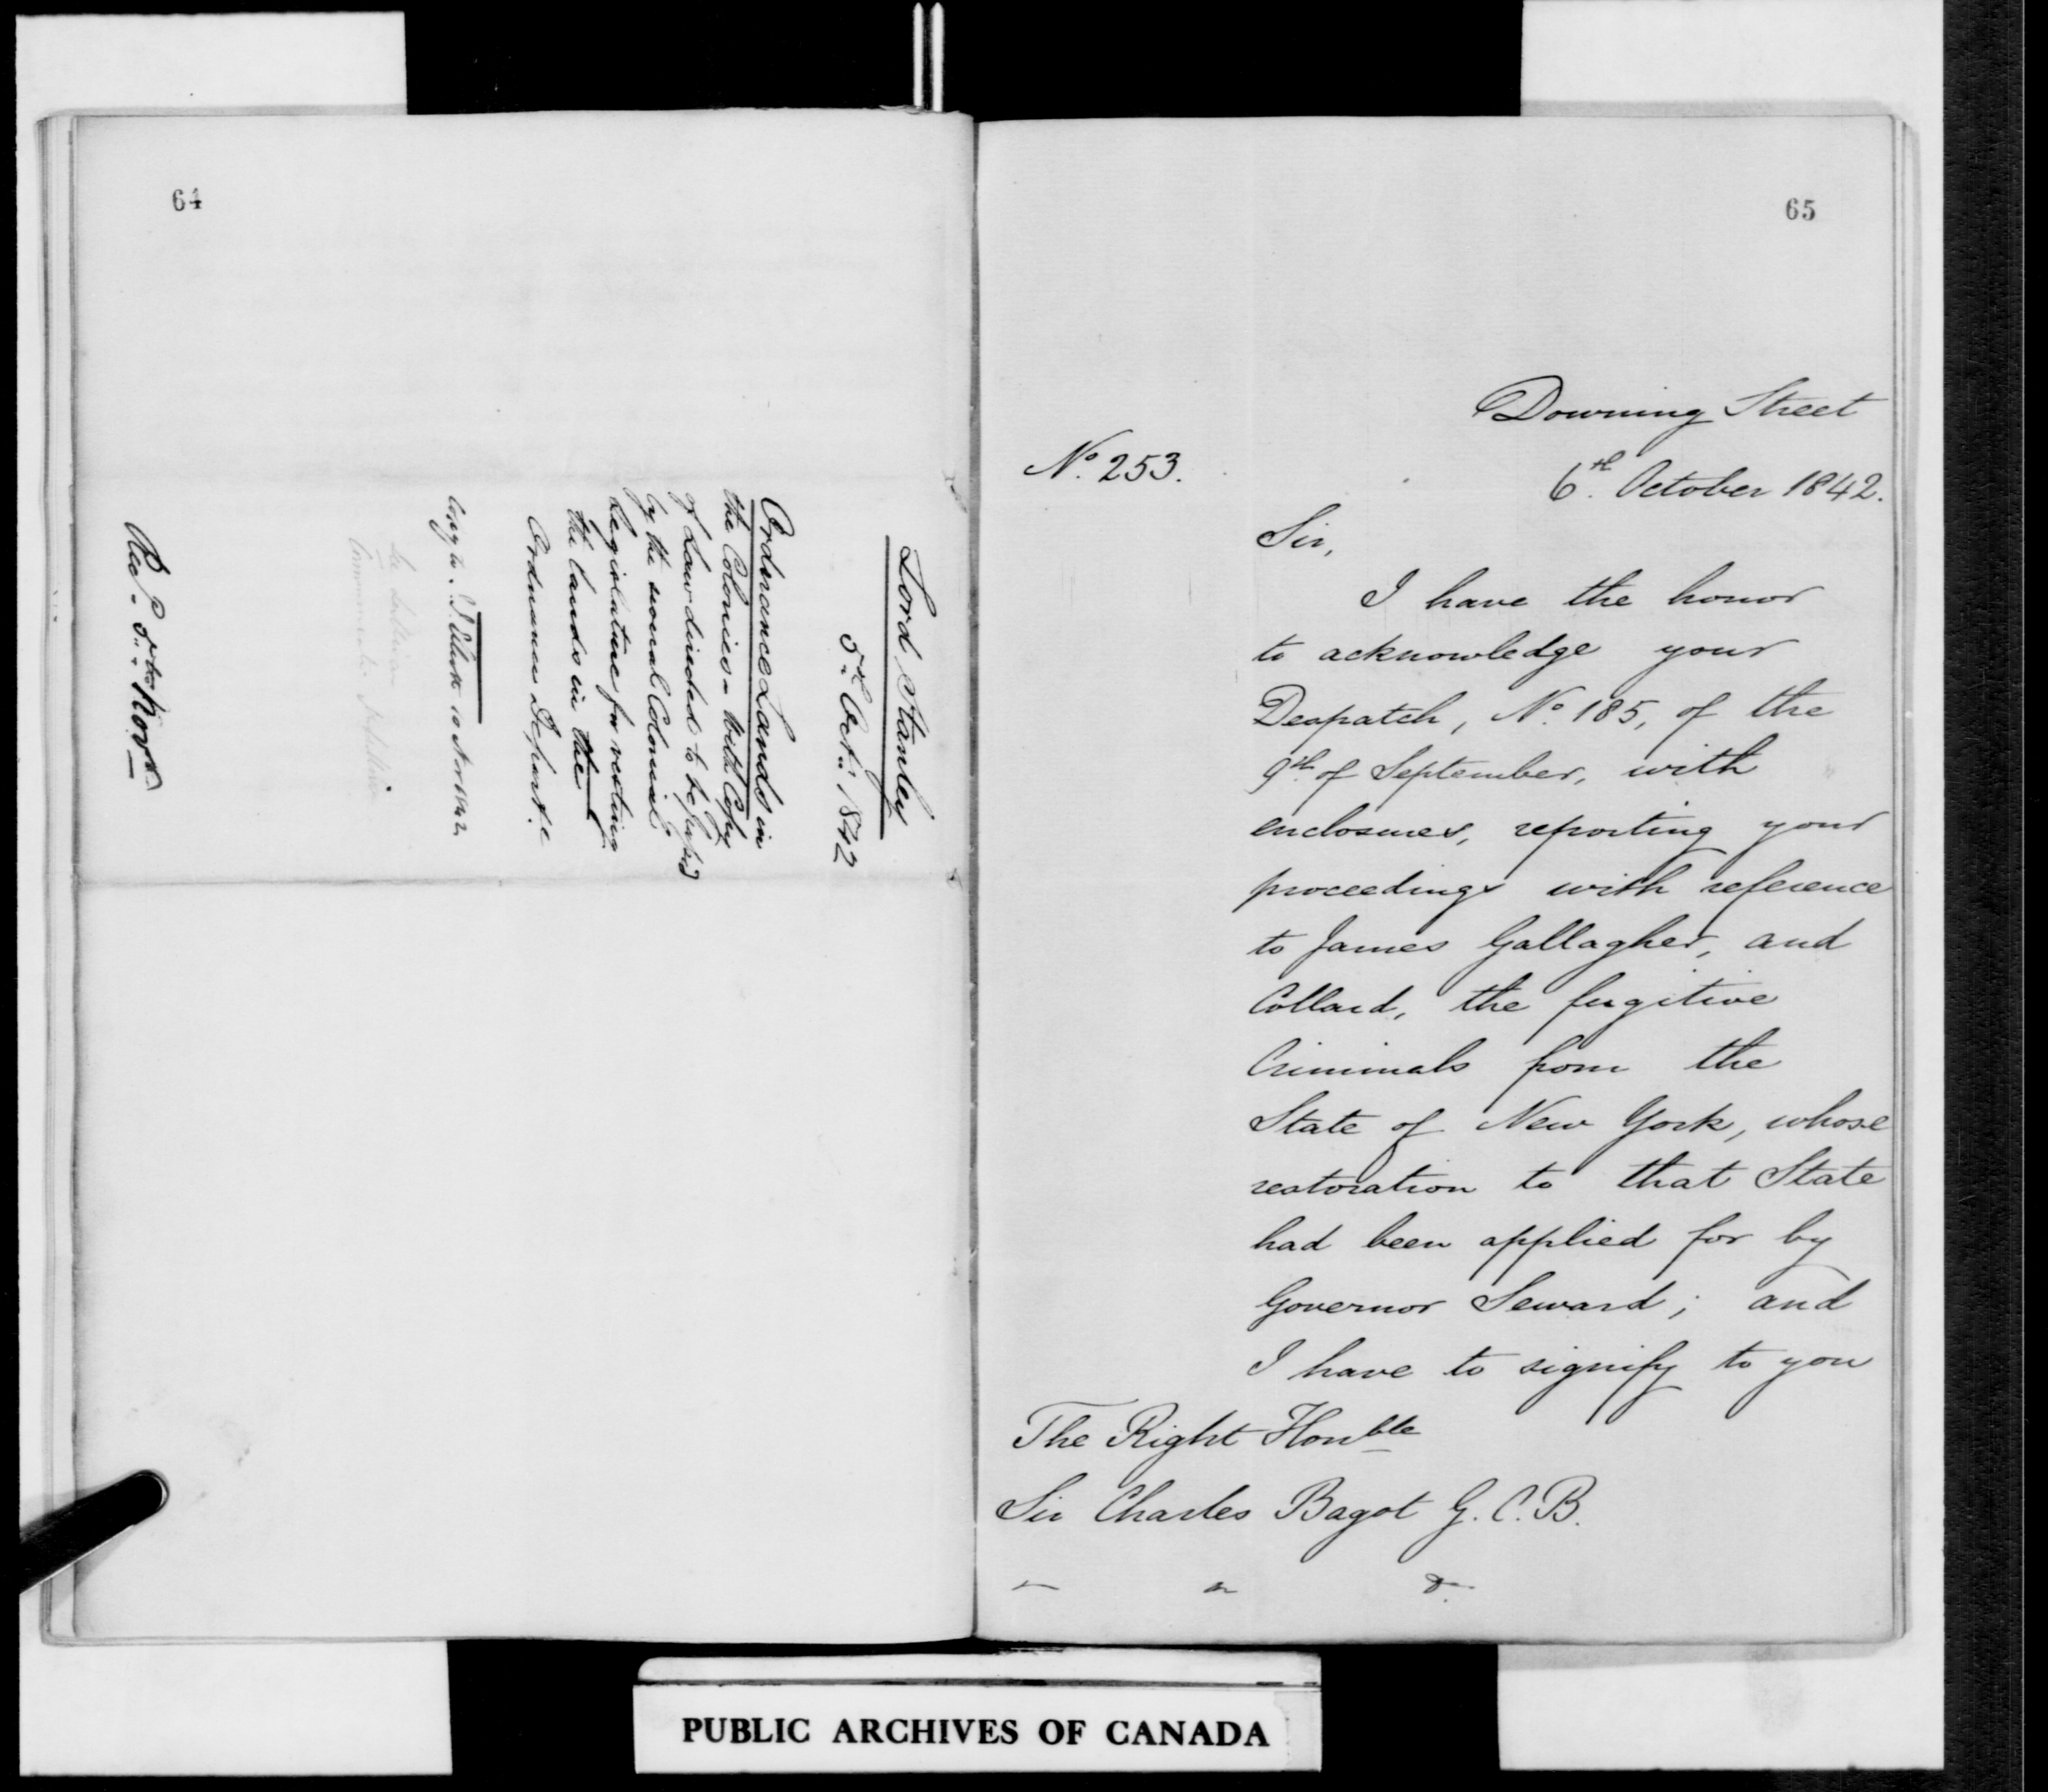 64
Lord Stanley
5th Octr. 1842
Ordnance Lands in
the Colonies - With Copy
of Law directed to be passed
by the several Colonial
Legislatures for vesting
the lands in the
Ordnance Depart.
Copy to 10 Novr 1842
Recd. 5th Novr.
65
Downing Street
No. 253.
6th October 1842.
Sir,
I have the honor
to acknowledge your
Despatch, No. 185, of the
9th of September, with
enclosures, reporting your
proceedings with reference
to James Gallagher, and
Collard, the fugitive
Criminals from the
State of New York, whose
restoration to that State
had been applied for by
Governor Seward; and
I have to signify to you
The Right Honble
Sir Charles Bagot G.C.B.
PUBLIC ARCHIVES OF CANADA